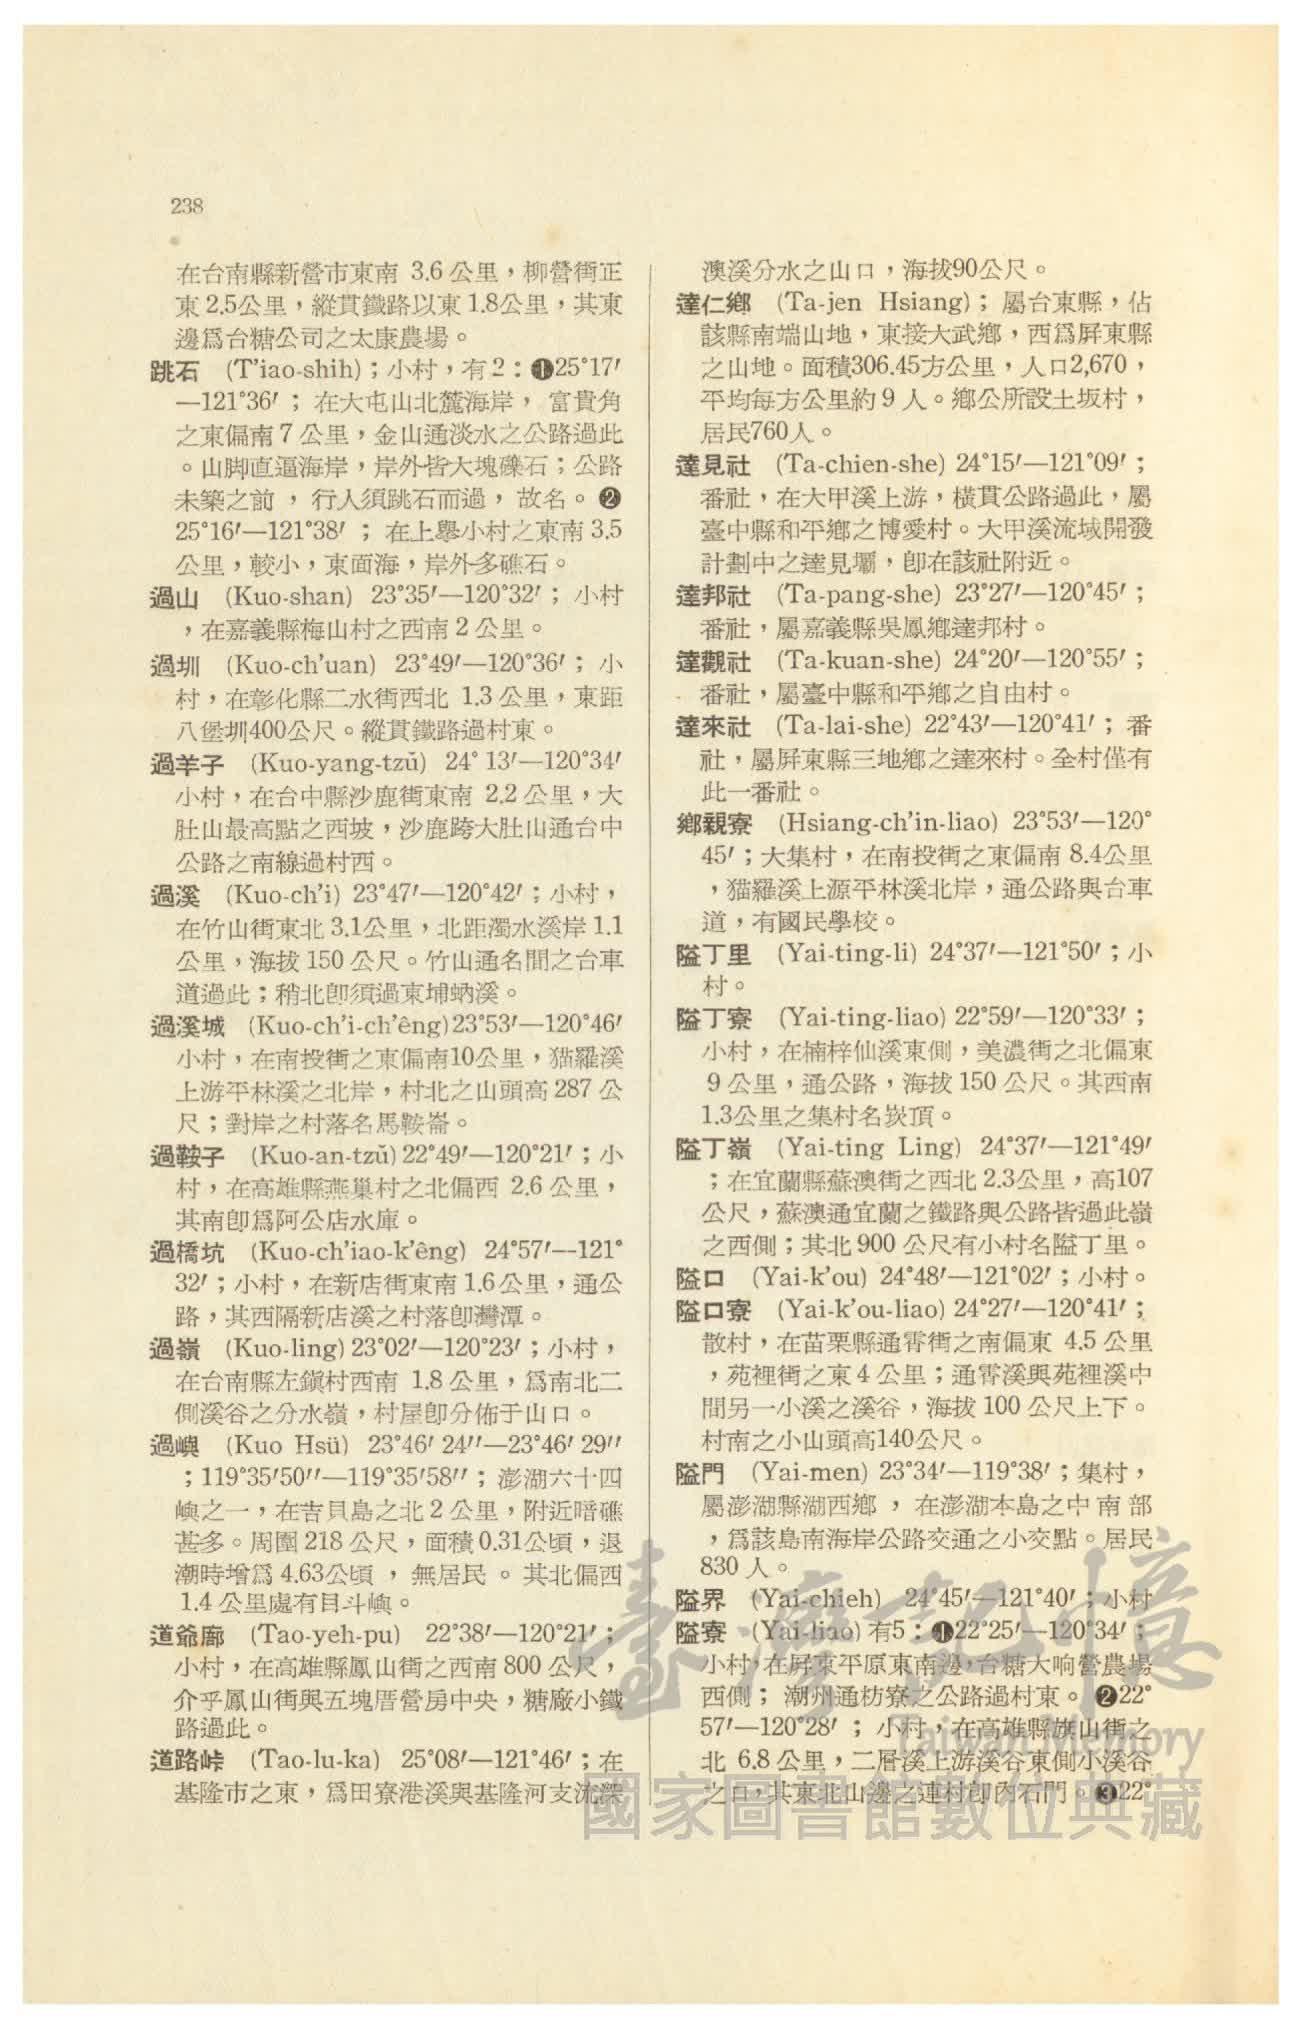 238
在台南縣新營市東南 3.6公里，柳營街正
東2.5公里，縱貫鐵路以東1.8公里，其東
邊爲台糖公司之太康農場。
跳石 (T'iao-shih)；小村，有2：❶25°17′
—121°36′；在大屯山北麓海岸，富貴角
之東偏南7公里，金山通淡水之公路過此
。山脚直逼海岸，岸外皆大塊礫石；公路
未築之前，行人須跳石而過，故名。❷
25°16′—121°38′；在上擧小村之東南3.5
公里，較小，東面海，岸外多礁石。
過山 (Kuo-shan) 23°35′—120°32′；小村
，在嘉義縣梅山村之西南2公里。
過圳 (Kuo-ch'uan) 23°49′—120°36′；小
村，在彰化縣二水街西北 1.3公里，東距
八堡圳400公尺。縱貫鐵路過村東。
過羊子 (Kuo-yang-tzŭ) 24°13′—120°34′
小村，在台中縣沙鹿街東南 2.2公里，大
肚山最高點之西坡，沙鹿跨大肚山通台中
公路之南線過村西。
過溪 (Kuo-ch'i) 23°47′—120°42′；小村，
在竹山街東北3.1公里，北距濁水溪岸1.1
公里，海拔150公尺。竹山通名間之台車
道過此；稍北卽須過東埔蚋溪。
過溪城 (Kuo-ch'i-ch'êng)23°53′—120°46′
小村，在南投街之東偏南10公里，猫羅溪
上游平林溪之北岸，村北之山頭高287公
尺；對岸之村落名馬鞍崙。
過鞍子 (Kuo-an-tzŭ)22°49′—120°21′；小
村，在高雄縣燕巢村之北偏西 2.6公里，
其南卽爲阿公店水庫。
過橋坑 (Kuo-ch'iao-k'êng) 24°57′—121°
32′；小村，在新店街東南1.6公里，通公
路，其西隔新店溪之村落卽灣潭。
過嶺 (Kuo-ling)23°02′—120°23′；小村，
在台南縣左鎭村西南 1.8公里，爲南北二
側溪谷之分水嶺，村屋卽分佈于山口。
過嶼 (Kuo Hsü) 23°46′24″—23°46′29″
；119°35′50″—119°35′58″；澎湖六十四
嶼之一，在吉貝島之北2公里，附近暗礁
甚多。周圍218公尺，面積0.31公頃，退
潮時增爲4.63公頃，無居民。其北偏西
1.4公里處有目斗嶼。
道爺廍 (Tao-yeh-pu) 22°38′—120°21′；
小村，在高雄縣鳳山街之西南800公尺，
介乎鳳山街與五塊厝營房中央，糖廠小鐵
路過此。
道路峠 (Tao-lu-ka) 25°08′—121°46′；在
基隆市之東，爲田寮港溪與基隆河支流深
澳溪分水之山口，海拔90公尺。
達仁鄉 (Ta-jen Hsiang)；屬台東縣，佔
該縣南端山地，東接大武鄉，西爲屏東縣
之山地。面積306.45方公里，人口2,670，
平均每方公里約9人。鄉公所設土坂村，
居民760人。
達見社 (Ta-chien-she) 24°15′—121°09′；
番社，在大甲溪上游，橫貫公路過此，屬
臺中縣和平鄉之博愛村。大甲溪流域開發
計劃中之達見壩，卽在該社附近。
達邦社 (Ta-pang-she) 23°27′—120°45′；
番社，屬嘉義縣吳鳳鄉達邦村。
達觀社 (Ta-kuan-she) 24°20′—120°55′；
番社，屬臺中縣和平鄉之自由村。
達來社 (Ta-lai-she) 22°43′—120°41′；番
社，屬屏東縣三地鄉之達來村。全村僅有
此一番社。
鄉親寮 (Hsiang-ch'in-liao) 23°53′—120°
45′；大集村，在南投街之東偏南8.4公里
，猫羅溪上源平林溪北岸，通公路與台車
道，有國民學校。
隘丁里 (Yai-ting-li) 24°37′—121°50′；小
村。
隘丁寮 (Yai-ting-liao)22°59′—120°33′；
小村，在楠梓仙溪東側，美濃街之北偏東
9公里，通公路，海拔150公尺。其西南
1.3公里之集村名崁頂。
隘丁嶺 (Yai-ting Ling) 24°37′—121°49′
；在宜蘭縣蘇澳街之西北2.3公里，高107
公尺，蘇澳通宜蘭之鐵路與公路皆過此嶺
之西側；其北900公尺有小村名隘丁里。
隘口 (Yai-k'ou) 24°48′—121°02′；小村。
隘口寮 (Yai-k'ou-liao)24°27′—120°41′；
散村，在苗栗縣通霄街之南偏東 4.5公里
，苑裡街之東4公里；通霄溪與苑裡溪中
間另一小溪之溪谷，海拔100公尺上下。
村南之小山頭高140公尺。
隘門 (Yai-men) 23°34′—119°38′；集村，
屬澎湖縣湖西鄉，在澎湖本島之中南部
，爲該島南海岸公路交通之小交點。居民
830人。
隘界 (Yai-chieh) 24°45′—121°40′；小村
隘寮 (Yai-liao)有5：❶22°25′—120°34′；
小村，在屏東平原東南邊，台糖大响營農場
西側；潮州通枋寮之公路過村東。❷22°
57′—120°28′；小村，在高雄縣旗山街之
北 6.8公里，二層溪上游溪谷東側小溪谷
之口，其東北山邊之連村卽內石門。❸22°
臺灣記憶
Taiwan Memory
國家圖書館數位典藏